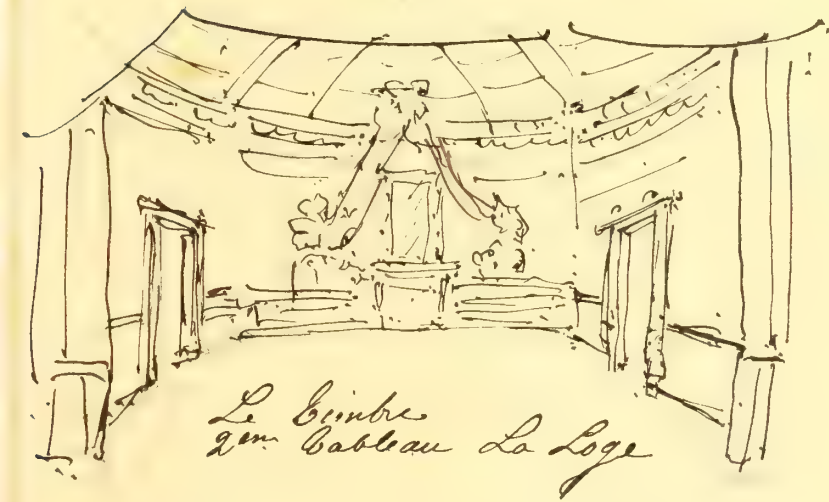 Le Timbre
2em Tableau La Loge